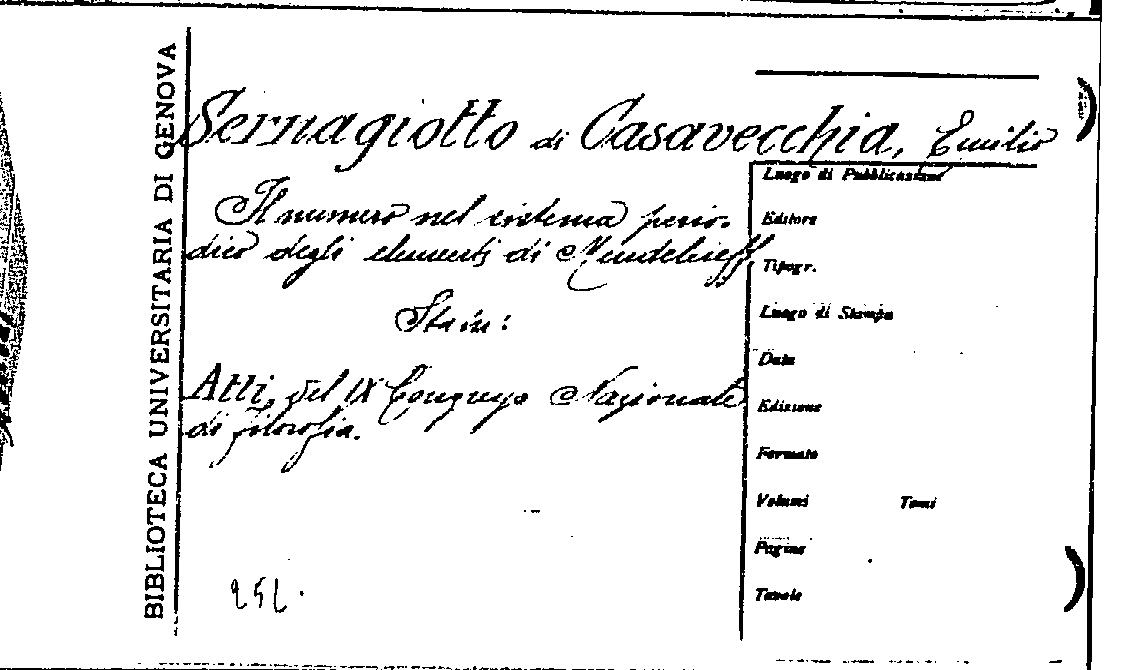 BIBLIOTECA UNIVERSITARIA DI GENOVA
Sernagiotto di Casavecchia, Emilio
Il numero nel sistema perio-
dico degli elementi di Mendeleieff.
Sta in:
Atti del IX Congresso Nazionale
di filosofia.
252.
Luogo di Pubblicazione
Editore
Tipogr.
Luogo di Stampa
Data
Edizione
Formato
Volumi Tomi
Pagine
Tavole